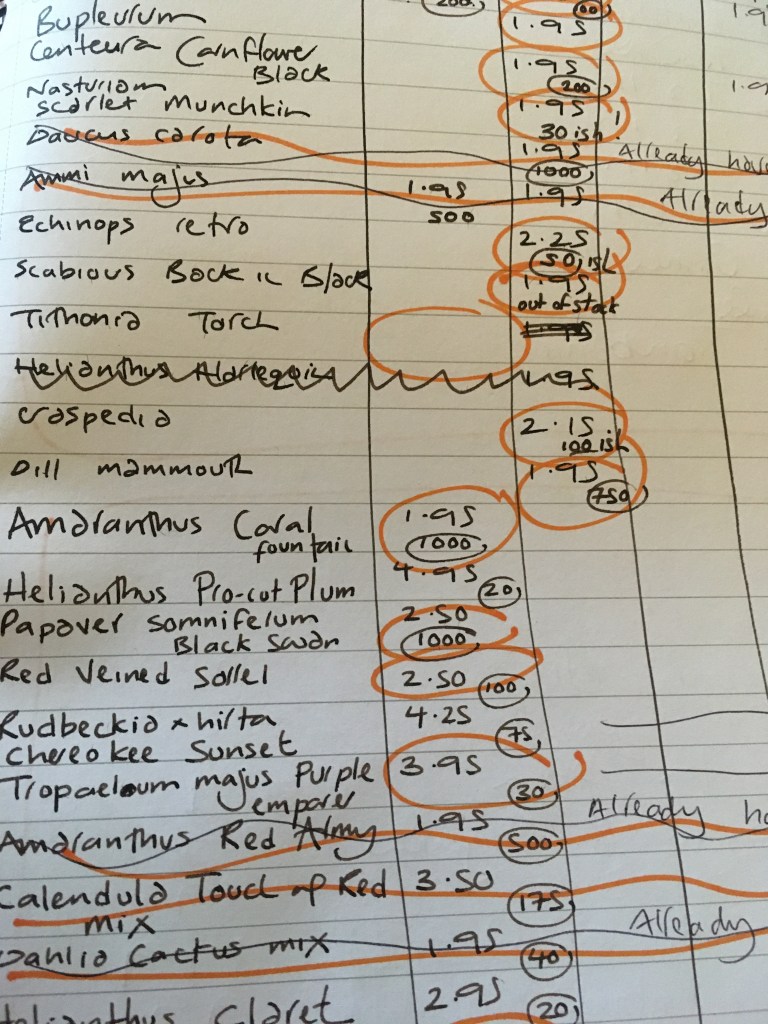 200, 00
Bupleurum 1.95 1.9
Centeura Cornflower 1.95
Black 200
Nasturiam 1.95 1.9
Scarlet Munchkin 30 ish!
Daucus carota 1.95 Already have
1000
Ammi majus 1.95 1.95 Already
500
Echinops retro 2.25
50 ish
Scabious Back in Black 1.95
out of stock
Tithonia Torch 1.95
Helianthus 1.95
Craspedia 2.15
100 ish
Dill mammouth 1.95
750
Amaranthus Coral 1.95
fountain 1000
Helianthus Pro-cut Plum 4.95 20
Papaver somniferum 2.50
Black Swan 1000
Red Veined Sorrel 2.50 100
Rudbeckia x hirta 4.25
Chereokee Sunset 75
Tropaeloum majus Purple 3.95
emparer 30
Amaranthus Red Army 1.95 500 Already ha
Calendula Touch of Red 3.50 175
mix
Dahlia Cactus mix 1.95 40 Already
Helianthus Claret 2.95 20